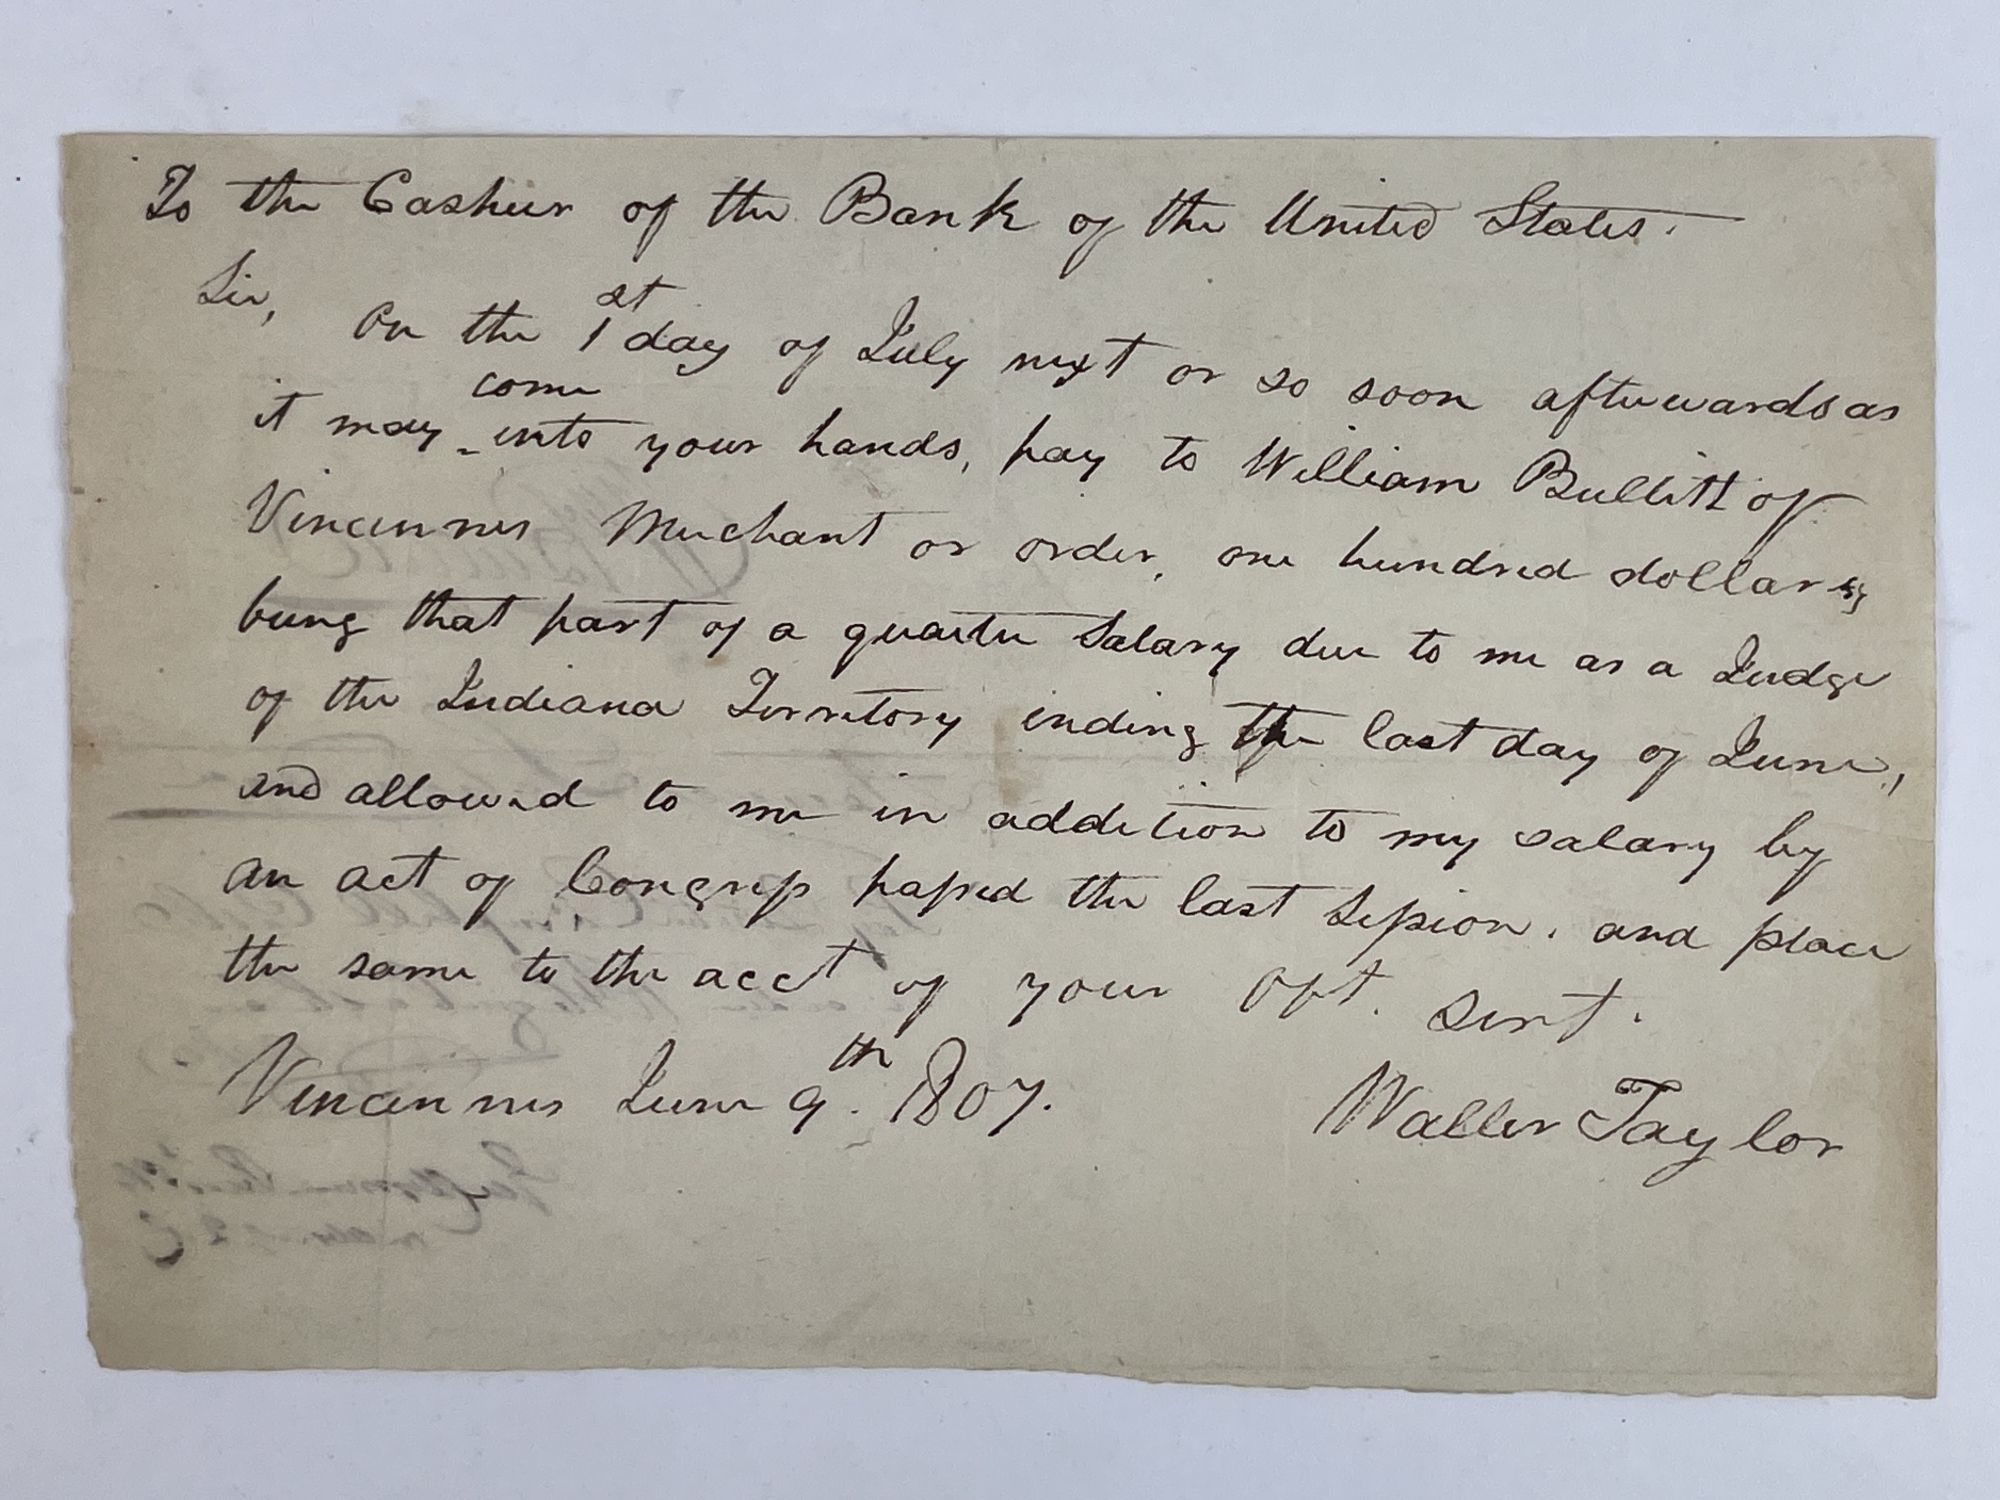 To the Cashier of the Bank of the United States.
Sir,
On the 1st day of July next or so soon afterwards as
come
it may into your hands, pay to William Bullitt of
Vincennes Merchant or order, one hundred dollars
being that part of a quarter Salary due to me as a Judge
of the Indiana Territory ending the last day of June,
and allowed to me in addition to my salary by
an act of Congress passed the last Session. and place
the same to the acct of your Obt. Sert.
Vincennes June 9th. 1807.
Waller Taylor